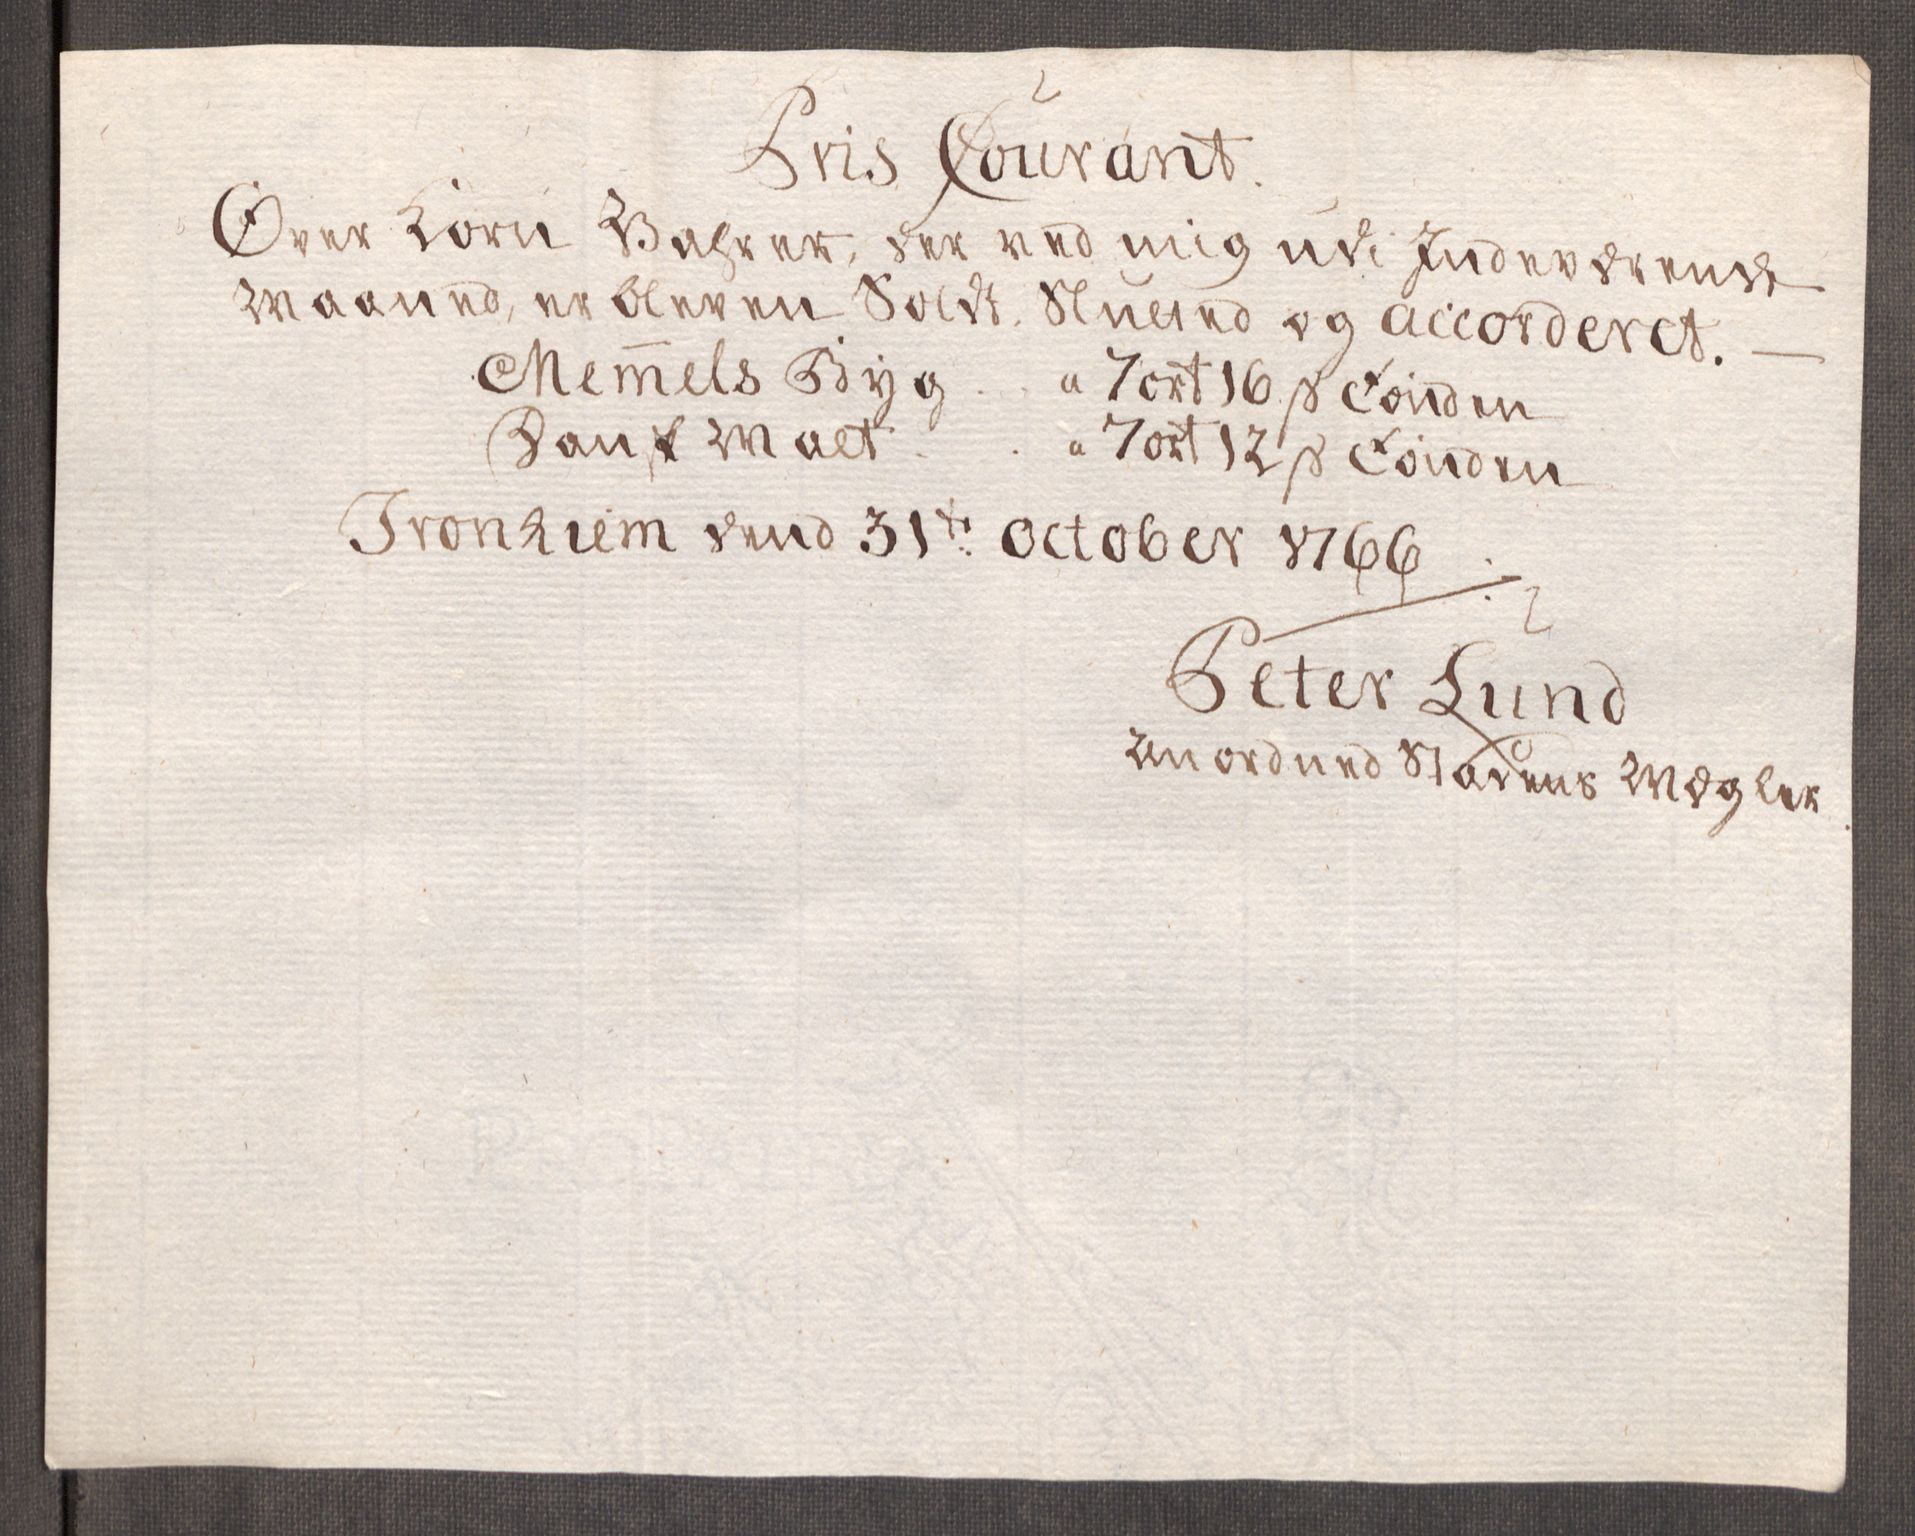 Pris Courant.
Over Korn Wahrer, der ved mig udi Indeværende
Maaned, er bleven Soldt. Sluted og accorderet. —
Mem̄els Byg . . a 7 ort 16 β Tönden
Dansk Malt . . a 7 ort 12 β Tönden
Tronhiem dend 31te October 1766
Peter Lund
Anordned Stadens Mægler